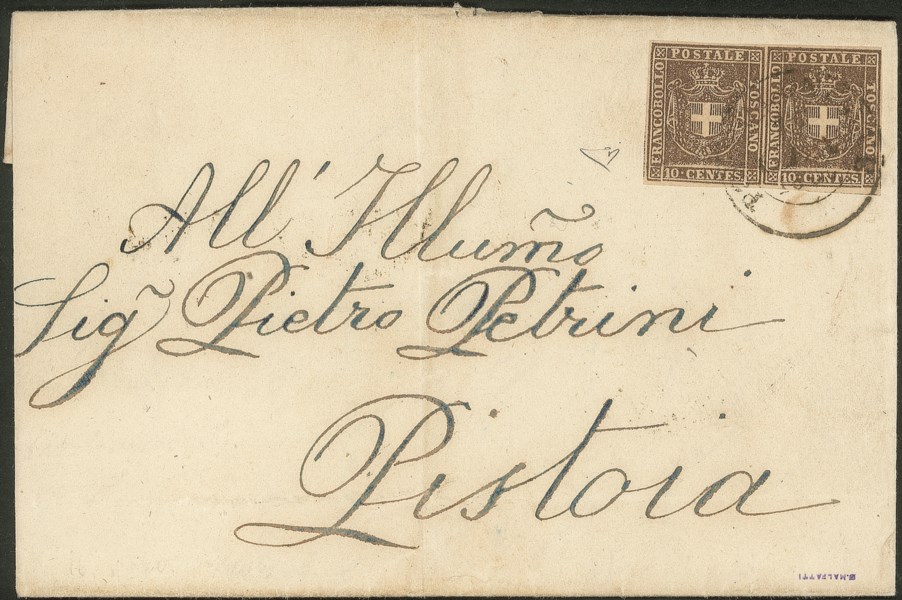 POSTALE
FRANCOBOLLO
TOSCANO
10 CENTES.
POSTALE
FRANCOBOLLO
TOSCANO
10 CENTES.
All' Illum̃o
Sig̃ Pietro Petrini
Pistoia
E.MALFATTI